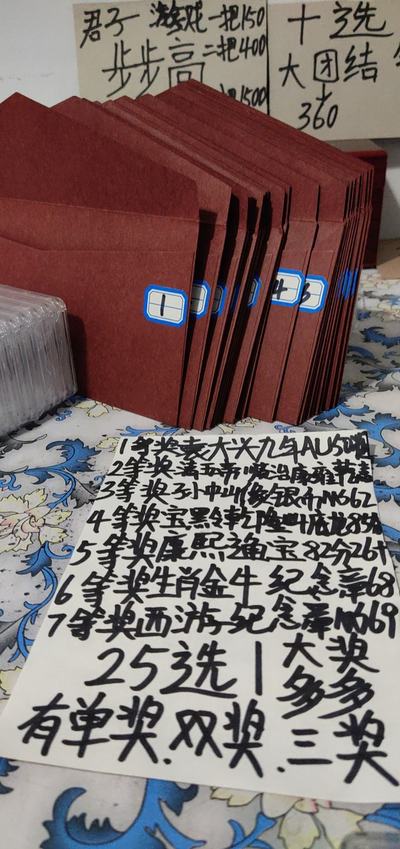 君子游戏一把150
步步高二把400
1500
十选
大团结
360
1
4
3
1等奖袁大头九年AU50
2等奖清五帝顺治康雍乾嘉
3等奖孙中山像银币MS62
4等奖宝黔乾隆
5等奖康熙渔宝82分26
6等奖生肖金牛纪念章68
7等奖西游纪念章M69
25选1大奖
多多
有单奖.双奖.三奖